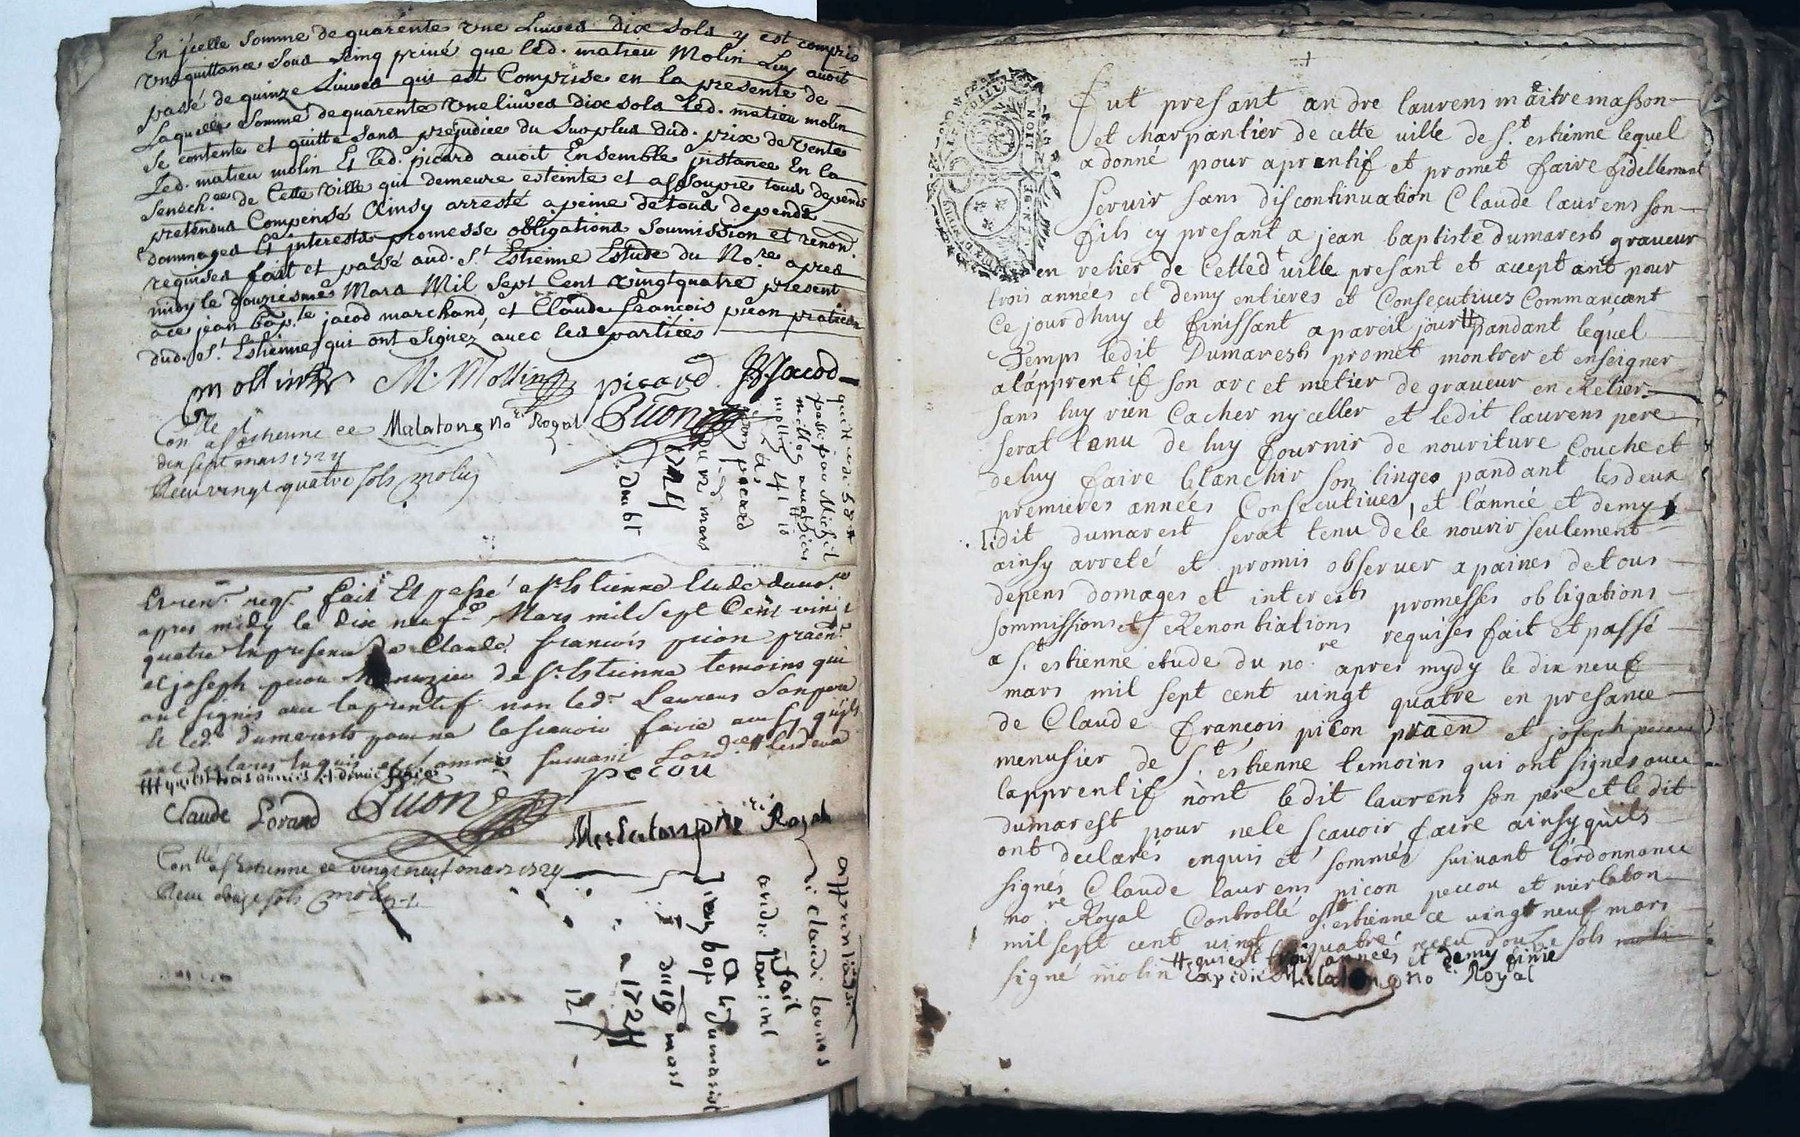 En jcelle somme de quarente une Livres dix sols y est compris
un quittance sous seing privé que led. matieu Molin Luy avoit
passé de quinze Livres qui est Comprise en la presente de
Laquelle somme de quarente une livres dix sols led. matieu molin
se contente et quitte sans prejudice du surplus dud. prix de vente
Led. matieu molin Et led. picard avoit Ensemble jnstance En la
Senech.ee de Cette ville qui demeure esteinte et assoupie tous depends
pretendus Compensé Ainsy arresté a peine de tous depends
dommages Et jnterests promesse obligations soumission et renon.
requises fait et passé aud. St Estienne Estude du No.re apres
midy le douziesme Mars Mil sept Cent vingt quatre present
a ce jean bap.te jacod marchand et Claude françois picon praticien
dud. St Estienne qui ont signez avec les parties
mollin M. Mollin picard J. Jacod
Malatong No.re Royal Picon
Con.lle a St estienne ce
dix sept mars 1724
Receu vingt quatre sols molin
quittance de 58 tt
passé par Michel
mollin a mathieu
mollin 41 tt 10
picard
Du 12 mars
1724
Et ren.on req.s fait Et passé a St Estienne Etude du no.re
apres midy le dix neuf.e Mars mil sept Cent vingt
quatre En presence de Claude françois picon praen.
et joseph pecou Menuzier de St Estienne temoins qui
ont signés avec laprentif non led. Laurens son pere
et led. dumarests pour ne le scavoir faire ainsy quils
ont declarés Enquis et sommes suivant Lord.ce
ttt qui est trois années et demie finie
pecou
Claude Lorand Picon
Malatong no.re Royal
Con.llé a St estienne ce vingt neuf mars 1724
Receu douze sols molin
apprentissage
de claude laurens
fait
andré laurens
A
jean bap dumarest
du 19 mars
1724
12
fut presant andre laurens maitre masson
et charpantier de cette ville de St estienne lequel
a donné pour aprentif et promet faire fidellement
servir sans discontinuation Claude laurens son
fils cy presant a jean baptiste dumarest graveur
en relier de Cetted.t ville presant et acceptant pour
trois années et demy entieres et Consecutives Commancant
Ce jourdhuy et finissant a pareil jour tt pandant lequel
Temps ledit Dumarest promet montrer et enseigner
a lapprentif son arc et metier de graveur en Relier
sans luy rien Cacher ny celler et ledit laurens pere
serat tenu de luy fournir de nouriture Couche et
de luy faire blanchir son linge pandant les deux
premieres années Consecutives, et l'année et demy
ledit dumarest serat tenu de le nourir seulement
ainsy arreté et promis observer a paines de tous
depens domages et interests promesses obligations
sommissions et Renontiations requises fait et passé
a St estienne etude du no.re apres mydy le dix neuf
mars mil sept cent vingt quatre en presance
de Claude françois picon praen et joseph pecou
menusier de St estienne temoins qui ont signés avec
lapprentif nont ledit laurens son pere et le dit
dumarest pour ne le scavoir faire ainsy quils
ont declarés enquis et sommés suivant l'ordonnance
signés Claude laurens picon peccou et
no.re Royal Controllé a St estienne ce vingt neuf mars
mil sept cent vingt quatre receu douze sols
signé molin tt qui est trois années et demy finie
expedié Malatong no.re Royal